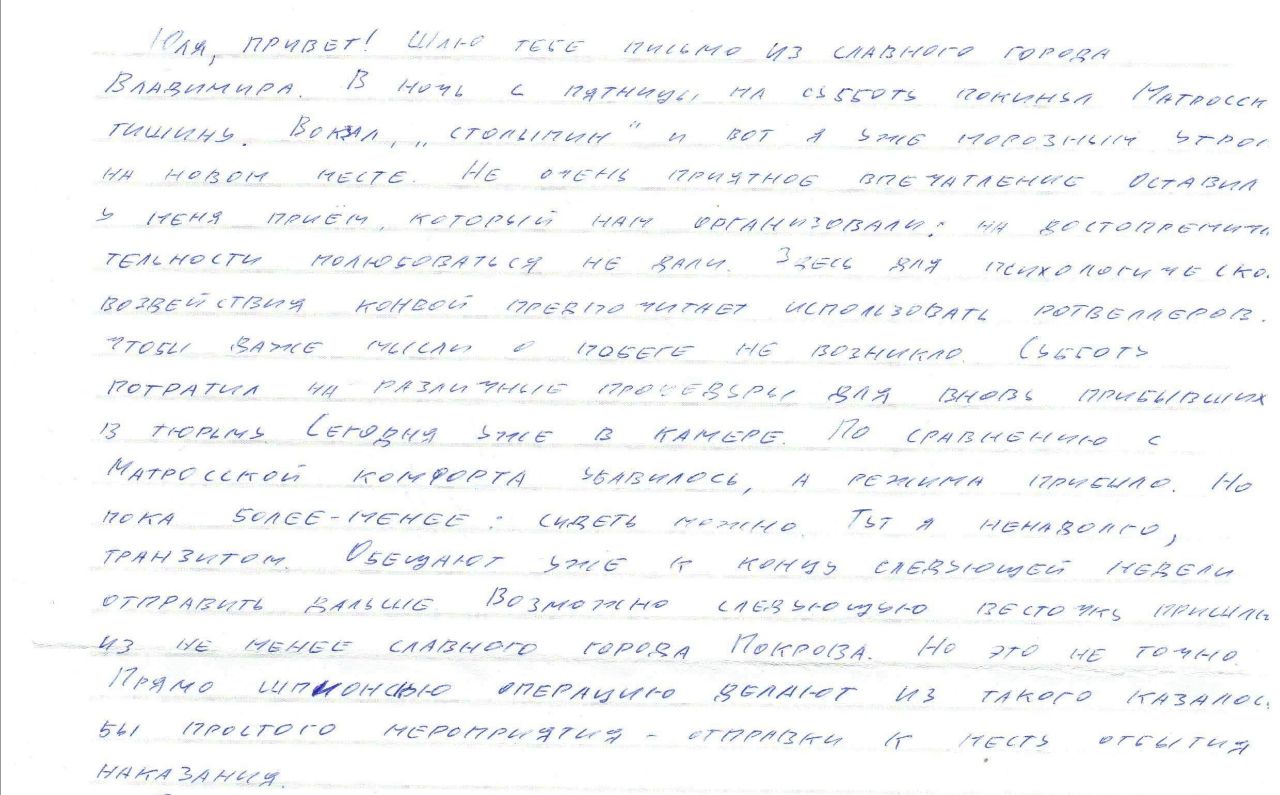 Юля, привет! Шлю тебе письмо из славного города
Владимира. В ночь с пятницы на субботу покинул Матросск
тишину. Вокзал, „столыпин" и вот я уже морозным утро
на новом месте. Не очень приятное впечатление оставил
у меня приём, который нам организовали: на достопремич
тельности полюбоваться не дали. Здесь для психологическо
воздействия конвой предпочитает использовать ротвеллеров.
чтобы даже мысли о побеге не возникло. Субботу
потратил на различные процедуры для вновь прибывших
в тюрьму. Сегодня уже в камере. По сравнению с
Матросской комфорта убавилось, а режима прибыло. Но
пока более-менее: сидеть можно. Тут я ненадолго,
транзитом. Обещают уже к концу следующей недели
отправить дальше. Возможно следующую весточку пришлю
из не менее славного города Покрова. Но это не точно.
Прямо шпионскую операцию делают из такого казалос
бы простого мероприятия - отправки к месту отбытия
наказания.